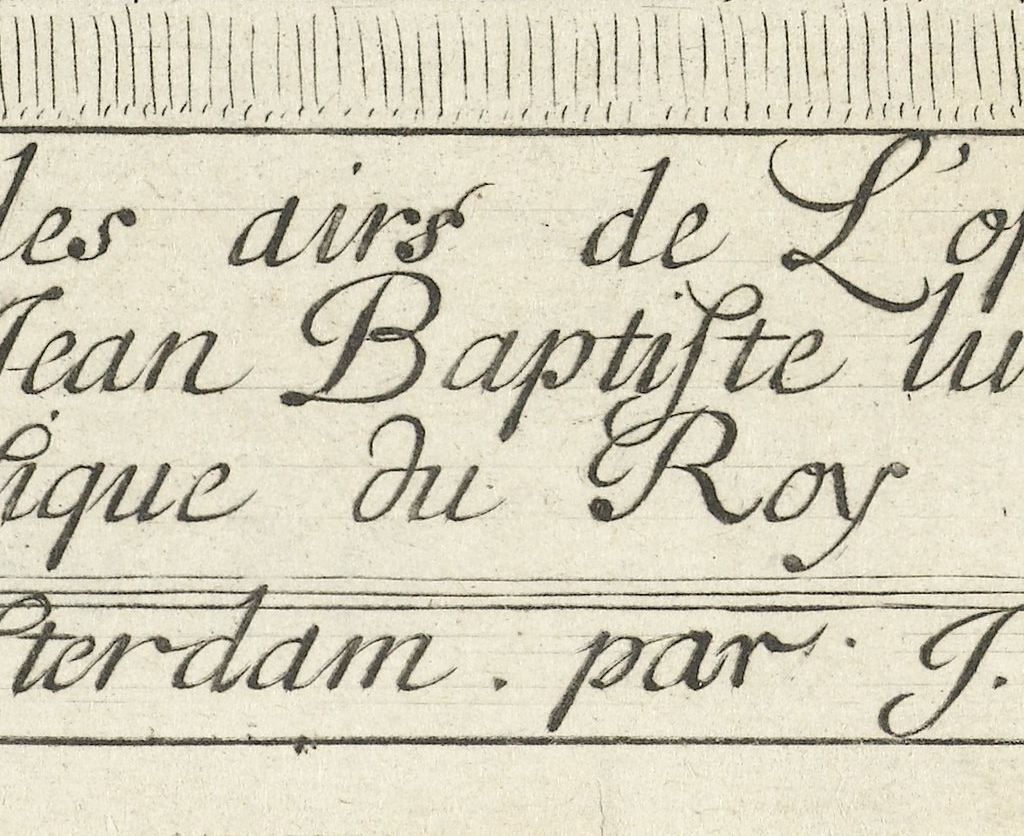 les airs de L'op
Jean Baptiste lu
sique du Roy
sterdam. par. J.